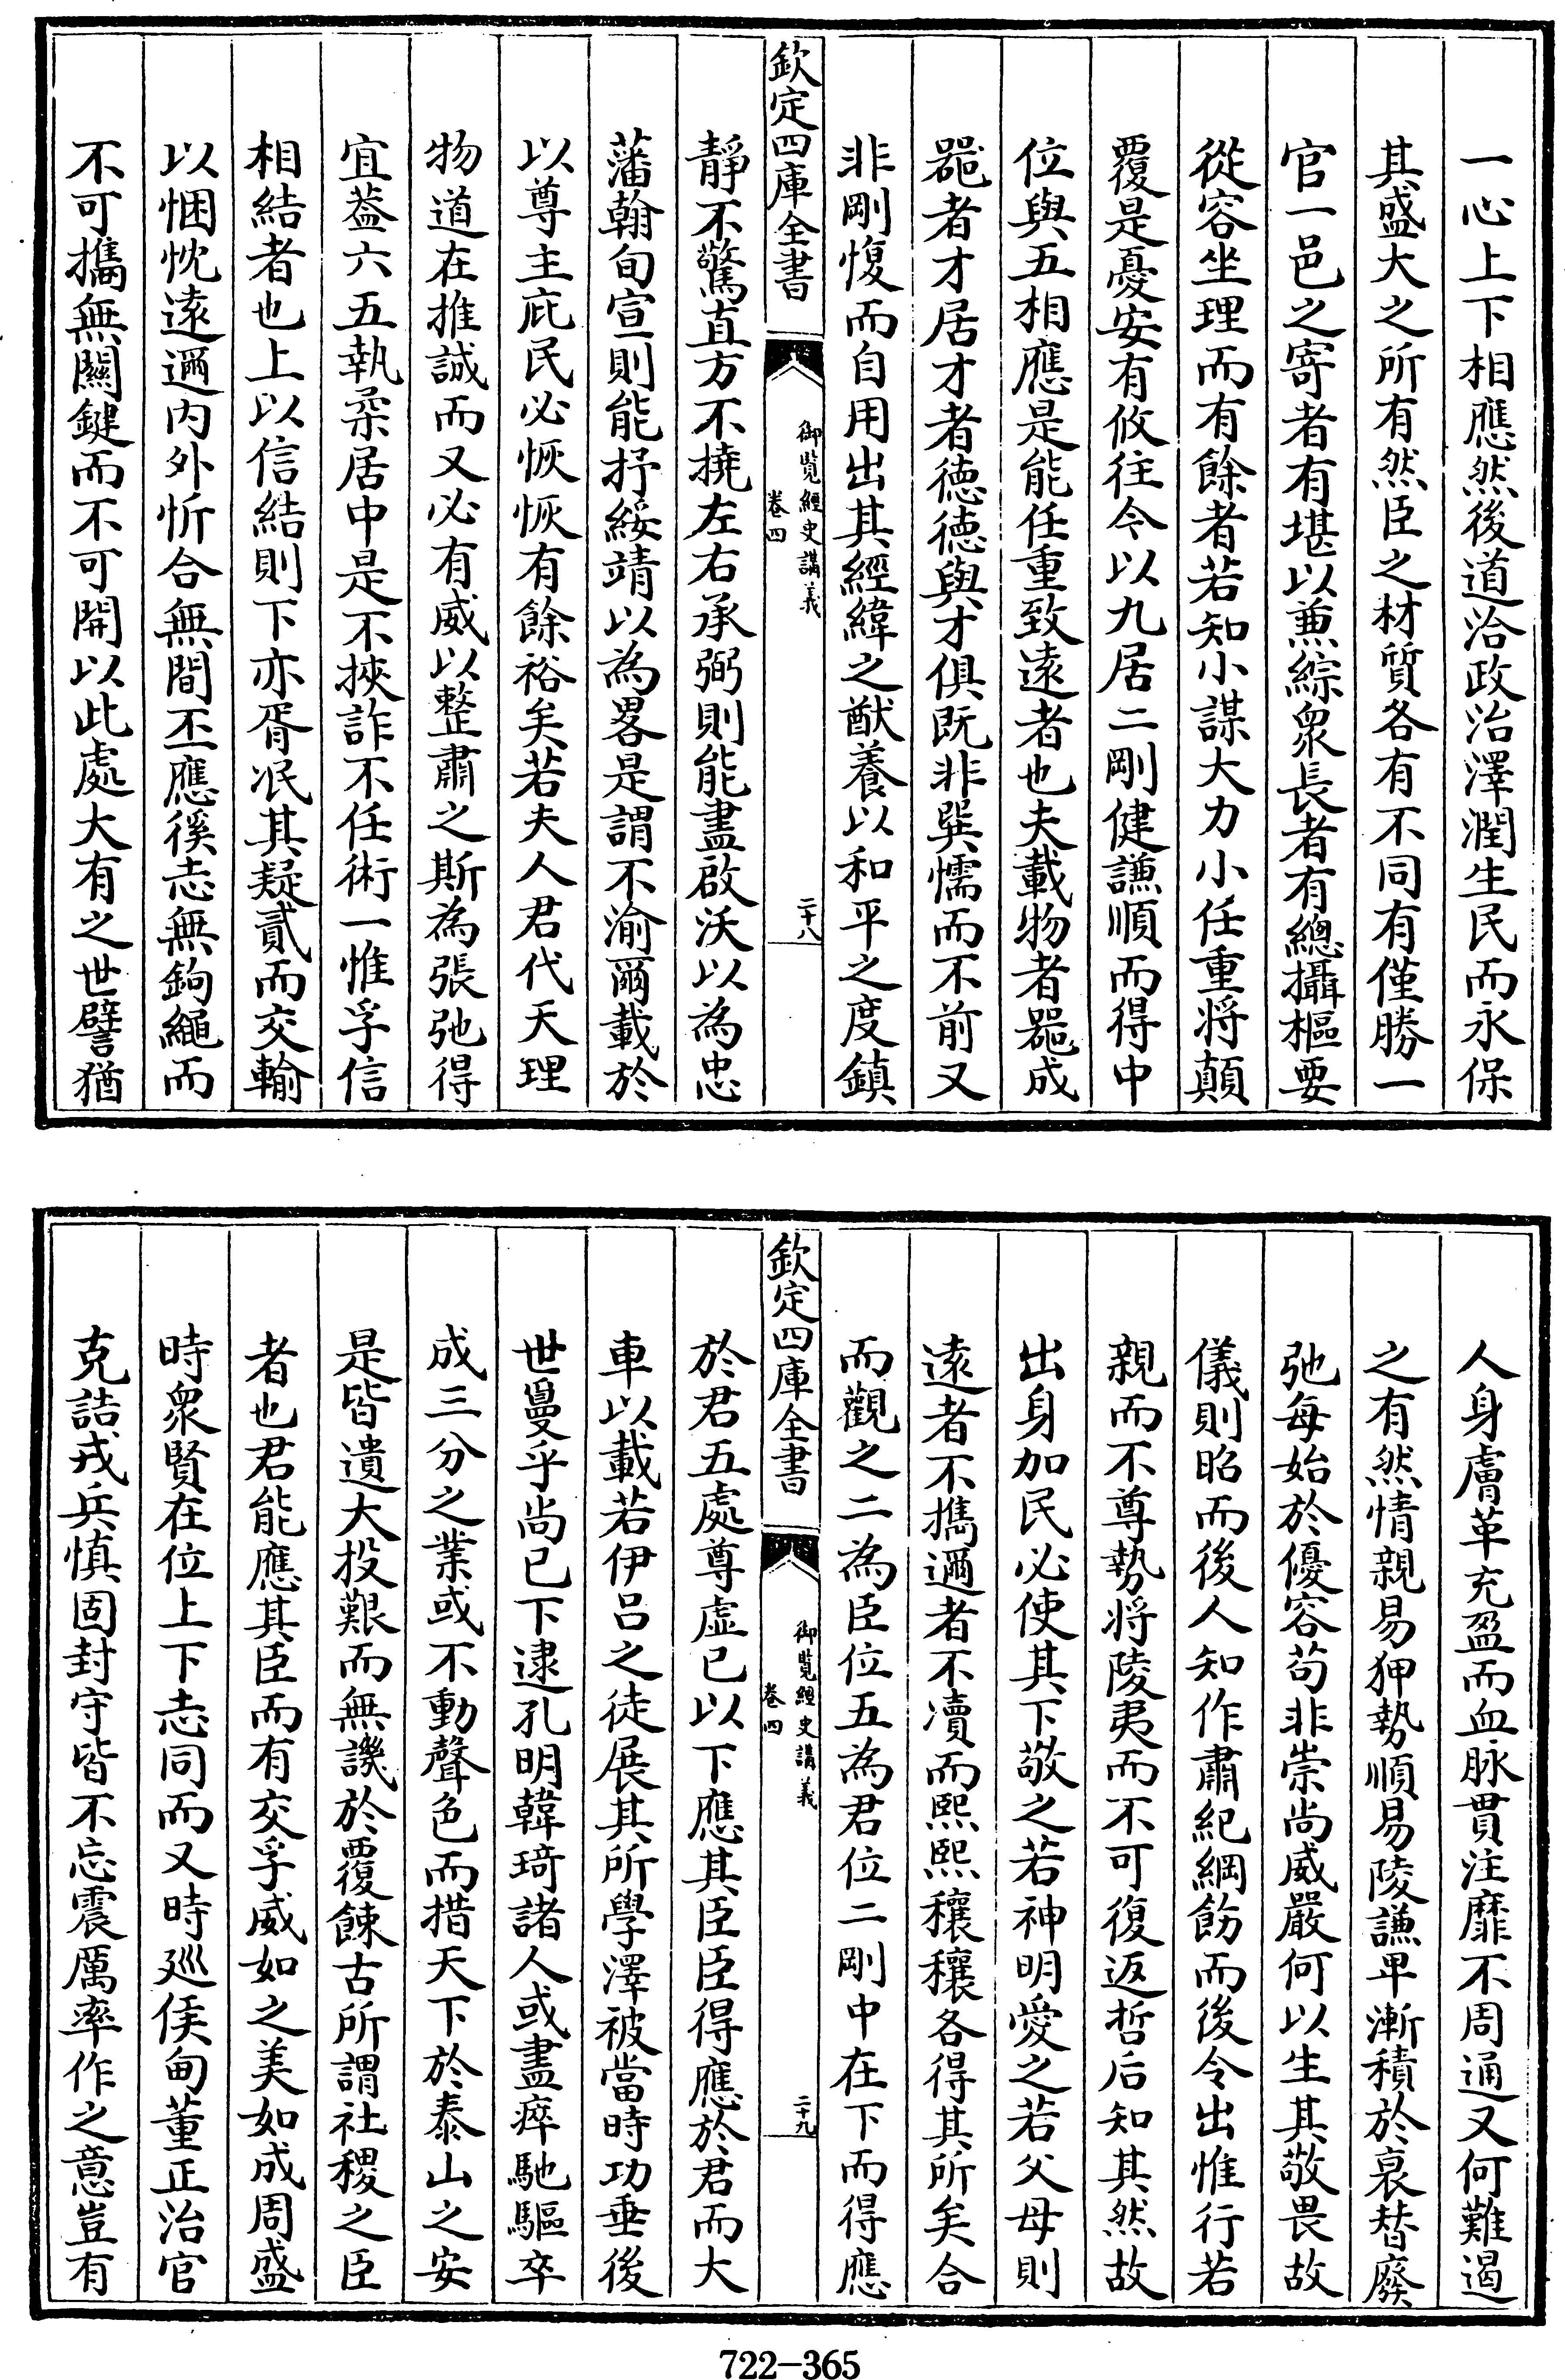 一心上下相應然後道洽政治澤潤生民而永保
其盛大之所有然臣之材質各有不同有僅勝一
官一邑之寄者有堪以兼綜衆長者有總攝樞要
從容坐理而有餘者若知小謀大力小任重将顛
覆是憂安有攸往今以九居二剛健謙順而得中
位與五相應是能任重致遠者也夫載物者器成
器者才居才者徳徳與才俱既非巽懦而不前又
非剛愎而自用出其經緯之猷養以和平之度鎮
欽定四庫全書
御覽經史講義
卷四
二十八
靜不驚直方不撓左右承弼則能盡啟沃以為忠
藩翰旬宣則能抒綏靖以為畧是謂不渝爾載於
以尊主庇民必恢恢有餘裕矣若夫人君代天理
物道在推誠而又必有威以整肅之斯為張弛得
宜葢六五執柔居中是不挾詐不任術一惟孚信
相結者也上以信結則下亦胥泯其疑貳而交輸
以悃忱遠邇内外忻合無間丕應徯志無鉤繩而
不可攜無關鍵而不可開以此處大有之世譬猶
人身膚革充盈而血脉貫注靡不周通又何難遏
之有然情親易狎勢順易陵謙卑漸積於裒替廢
弛每始於優容苟非崇尚威嚴何以生其敬畏故
儀則昭而後人知作肅紀綱飭而後令出惟行若
親而不尊勢将陵夷而不可復返哲后知其然故
出身加民必使其下敬之若神明愛之若父母則
遠者不攜邇者不凟而熙熙穰穰各得其所矣合
而觀之二為臣位五為君位二剛中在下而得應
欽定四庫全書
御覽經史講義
卷四
二十九
於君五處尊虚已以下應其臣臣得應於君而大
車以載若伊吕之徒展其所學澤被當時功垂後
世曼乎尚已下逮孔明韓琦諸人或盡瘁馳驅卒
成三分之業或不動聲色而措天下於泰山之安
是皆遺大投艱而無譏於覆餗古所謂社稷之臣
者也君能應其臣而有交孚威如之美如成周盛
時衆賢在位上下志同而又時廵侯甸董正治官
克詰戎兵慎固封守皆不忘震厲率作之意豈有
722-365